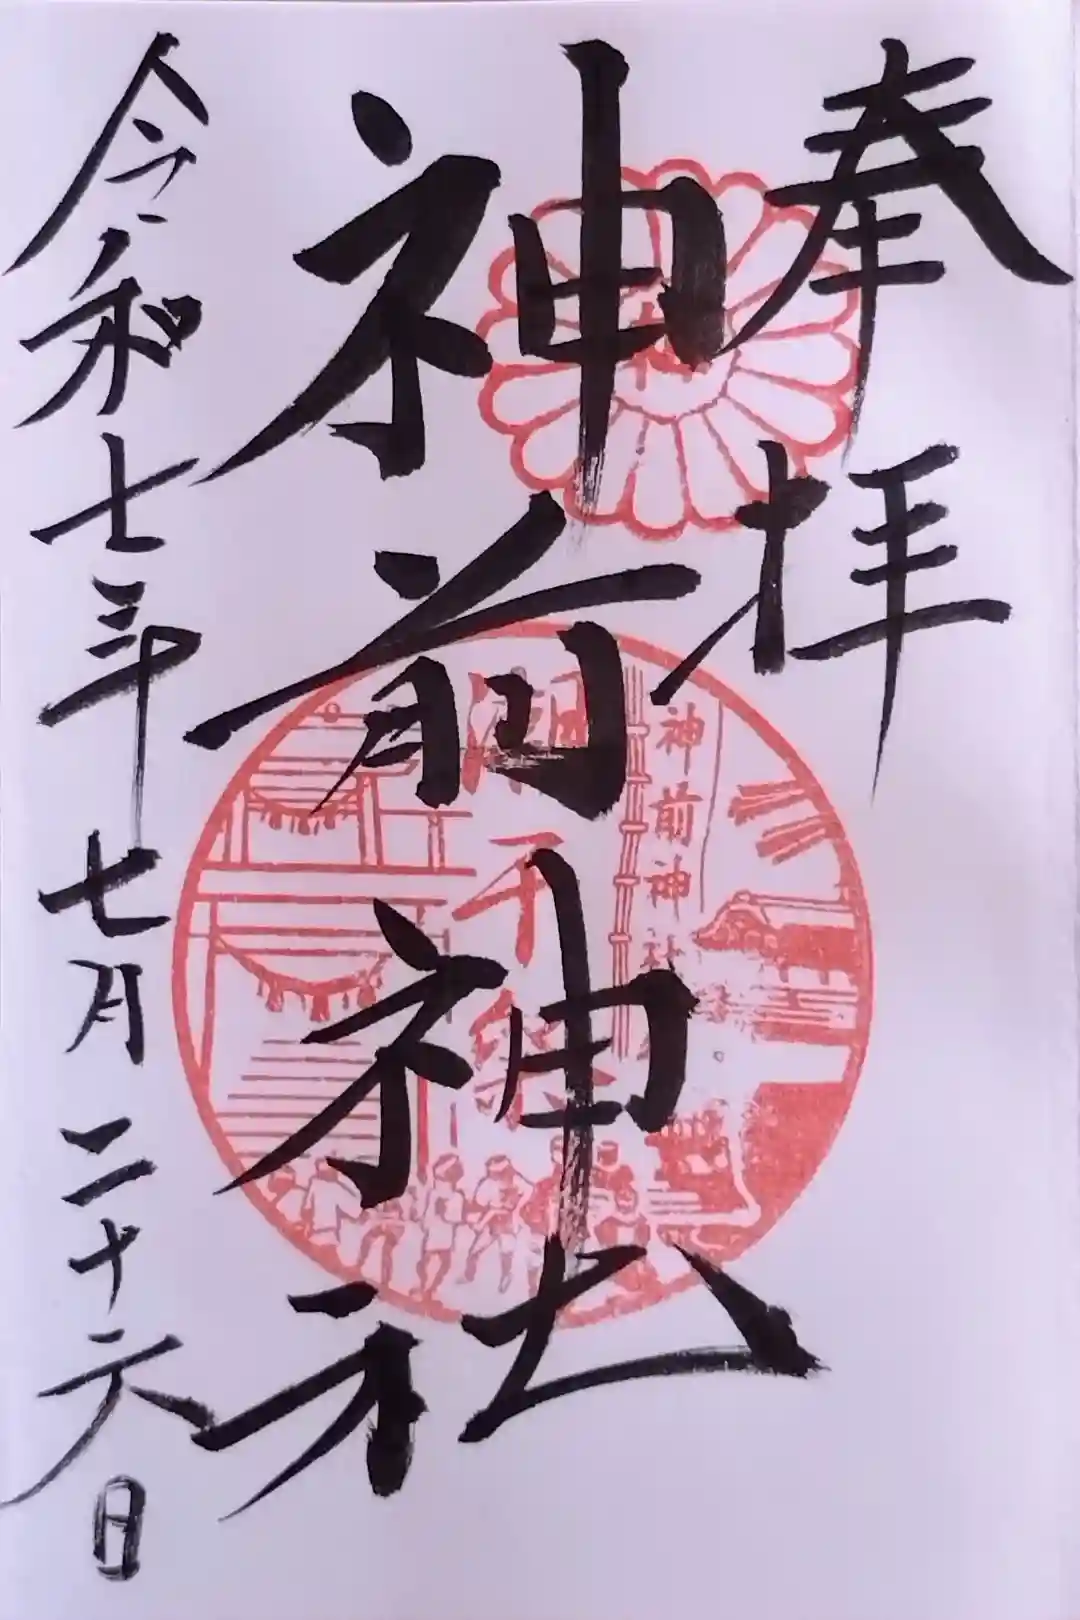 奉拝
神前神社
令和七年七月二十六日
神前神社
潮干祭